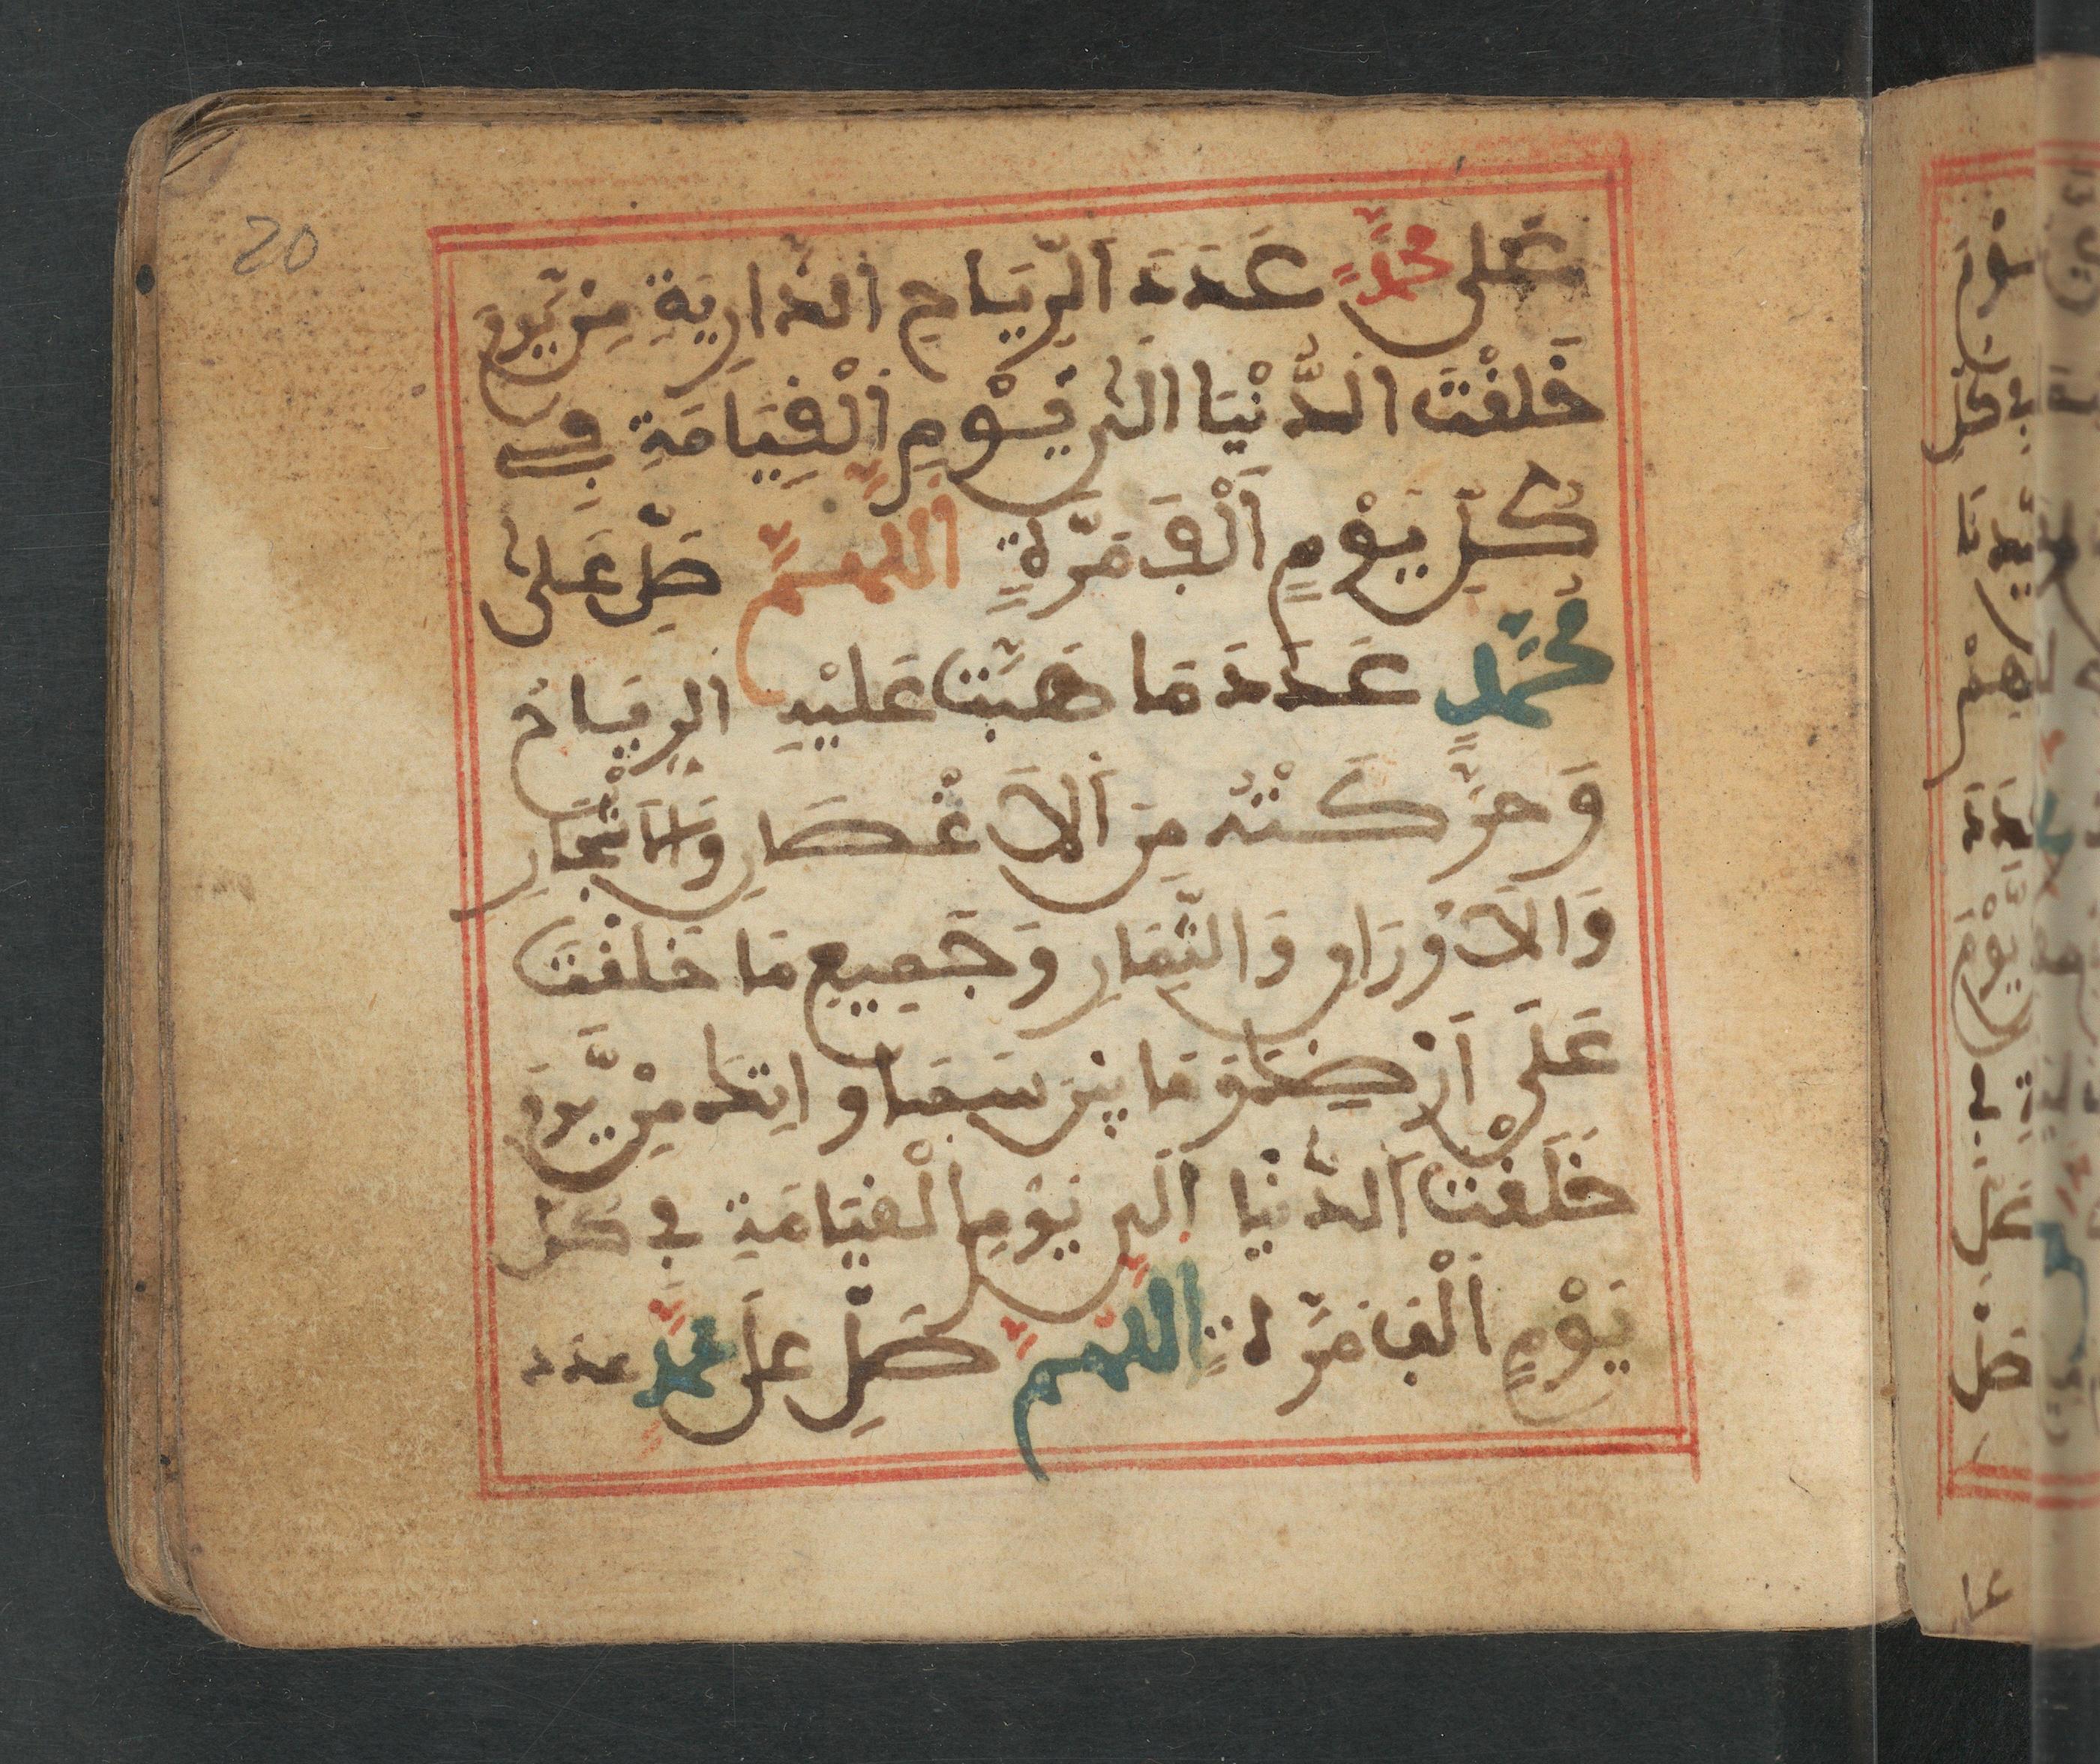 20
عَلى مُحَمَّدٍ عَدَدَ الرِّيَاحِ الذَّارِيَةِ مِنْ يَّوْمَ
خَلَقْتَ الدُّنْيَا إِلَى يَوْمِ الْقِيَامَةِ فِي
كُلِّ يَوْمٍ أَلْفَ مَرَّةٍ اللَّهُمَّ صَلِّ عَلَى
مُحَمَّدٍ عَدَدَ مَا هَبَّتْ عَلَيْهِ الرِّيَاحُ
وَحَرَّكَتْهُ مِنَ الْأَغْصَانِ وَالْأَشْجَارِ
وَالْأَوْرَاقِ وَالثِّمَارِ وَجَمِيعِ مَا خَلَقْتَ
عَلَى أَرْضِكَ وَمَا بَيْنَ سَمَاوَاتِكَ مِنْ يَّوْمَ
خَلَقْتَ الدُّنْيَا إِلَى يَوْمِ الْقِيَامَةِ فِي كُلِّ
يَوْمٍ أَلْفَ مَرَّةٍ اللَّهُمَّ صَلِّ عَلَى مُحَمَّدٍ عدد